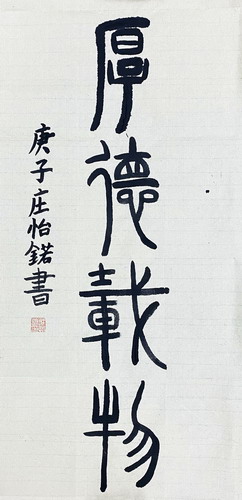 厚德載物
庚子庄怡鍩書